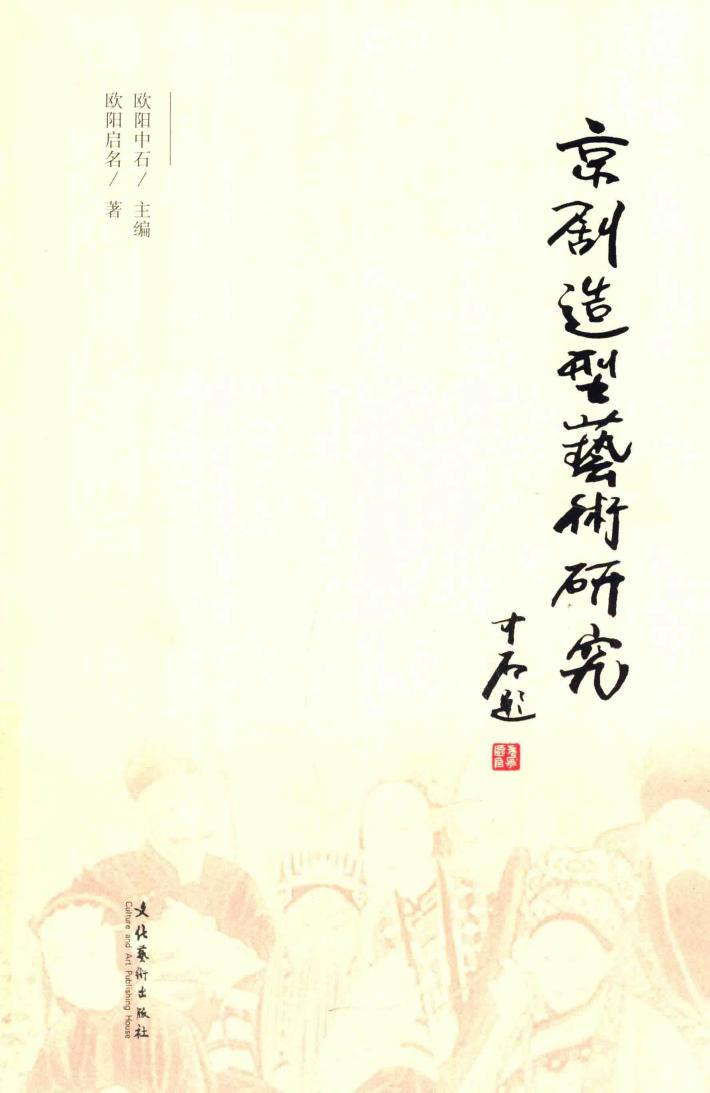 京剧造型藝術研究
中石题
欧阳中石/主编
欧阳启名/著
文化藝術出版社
Culture and Art Publishing House